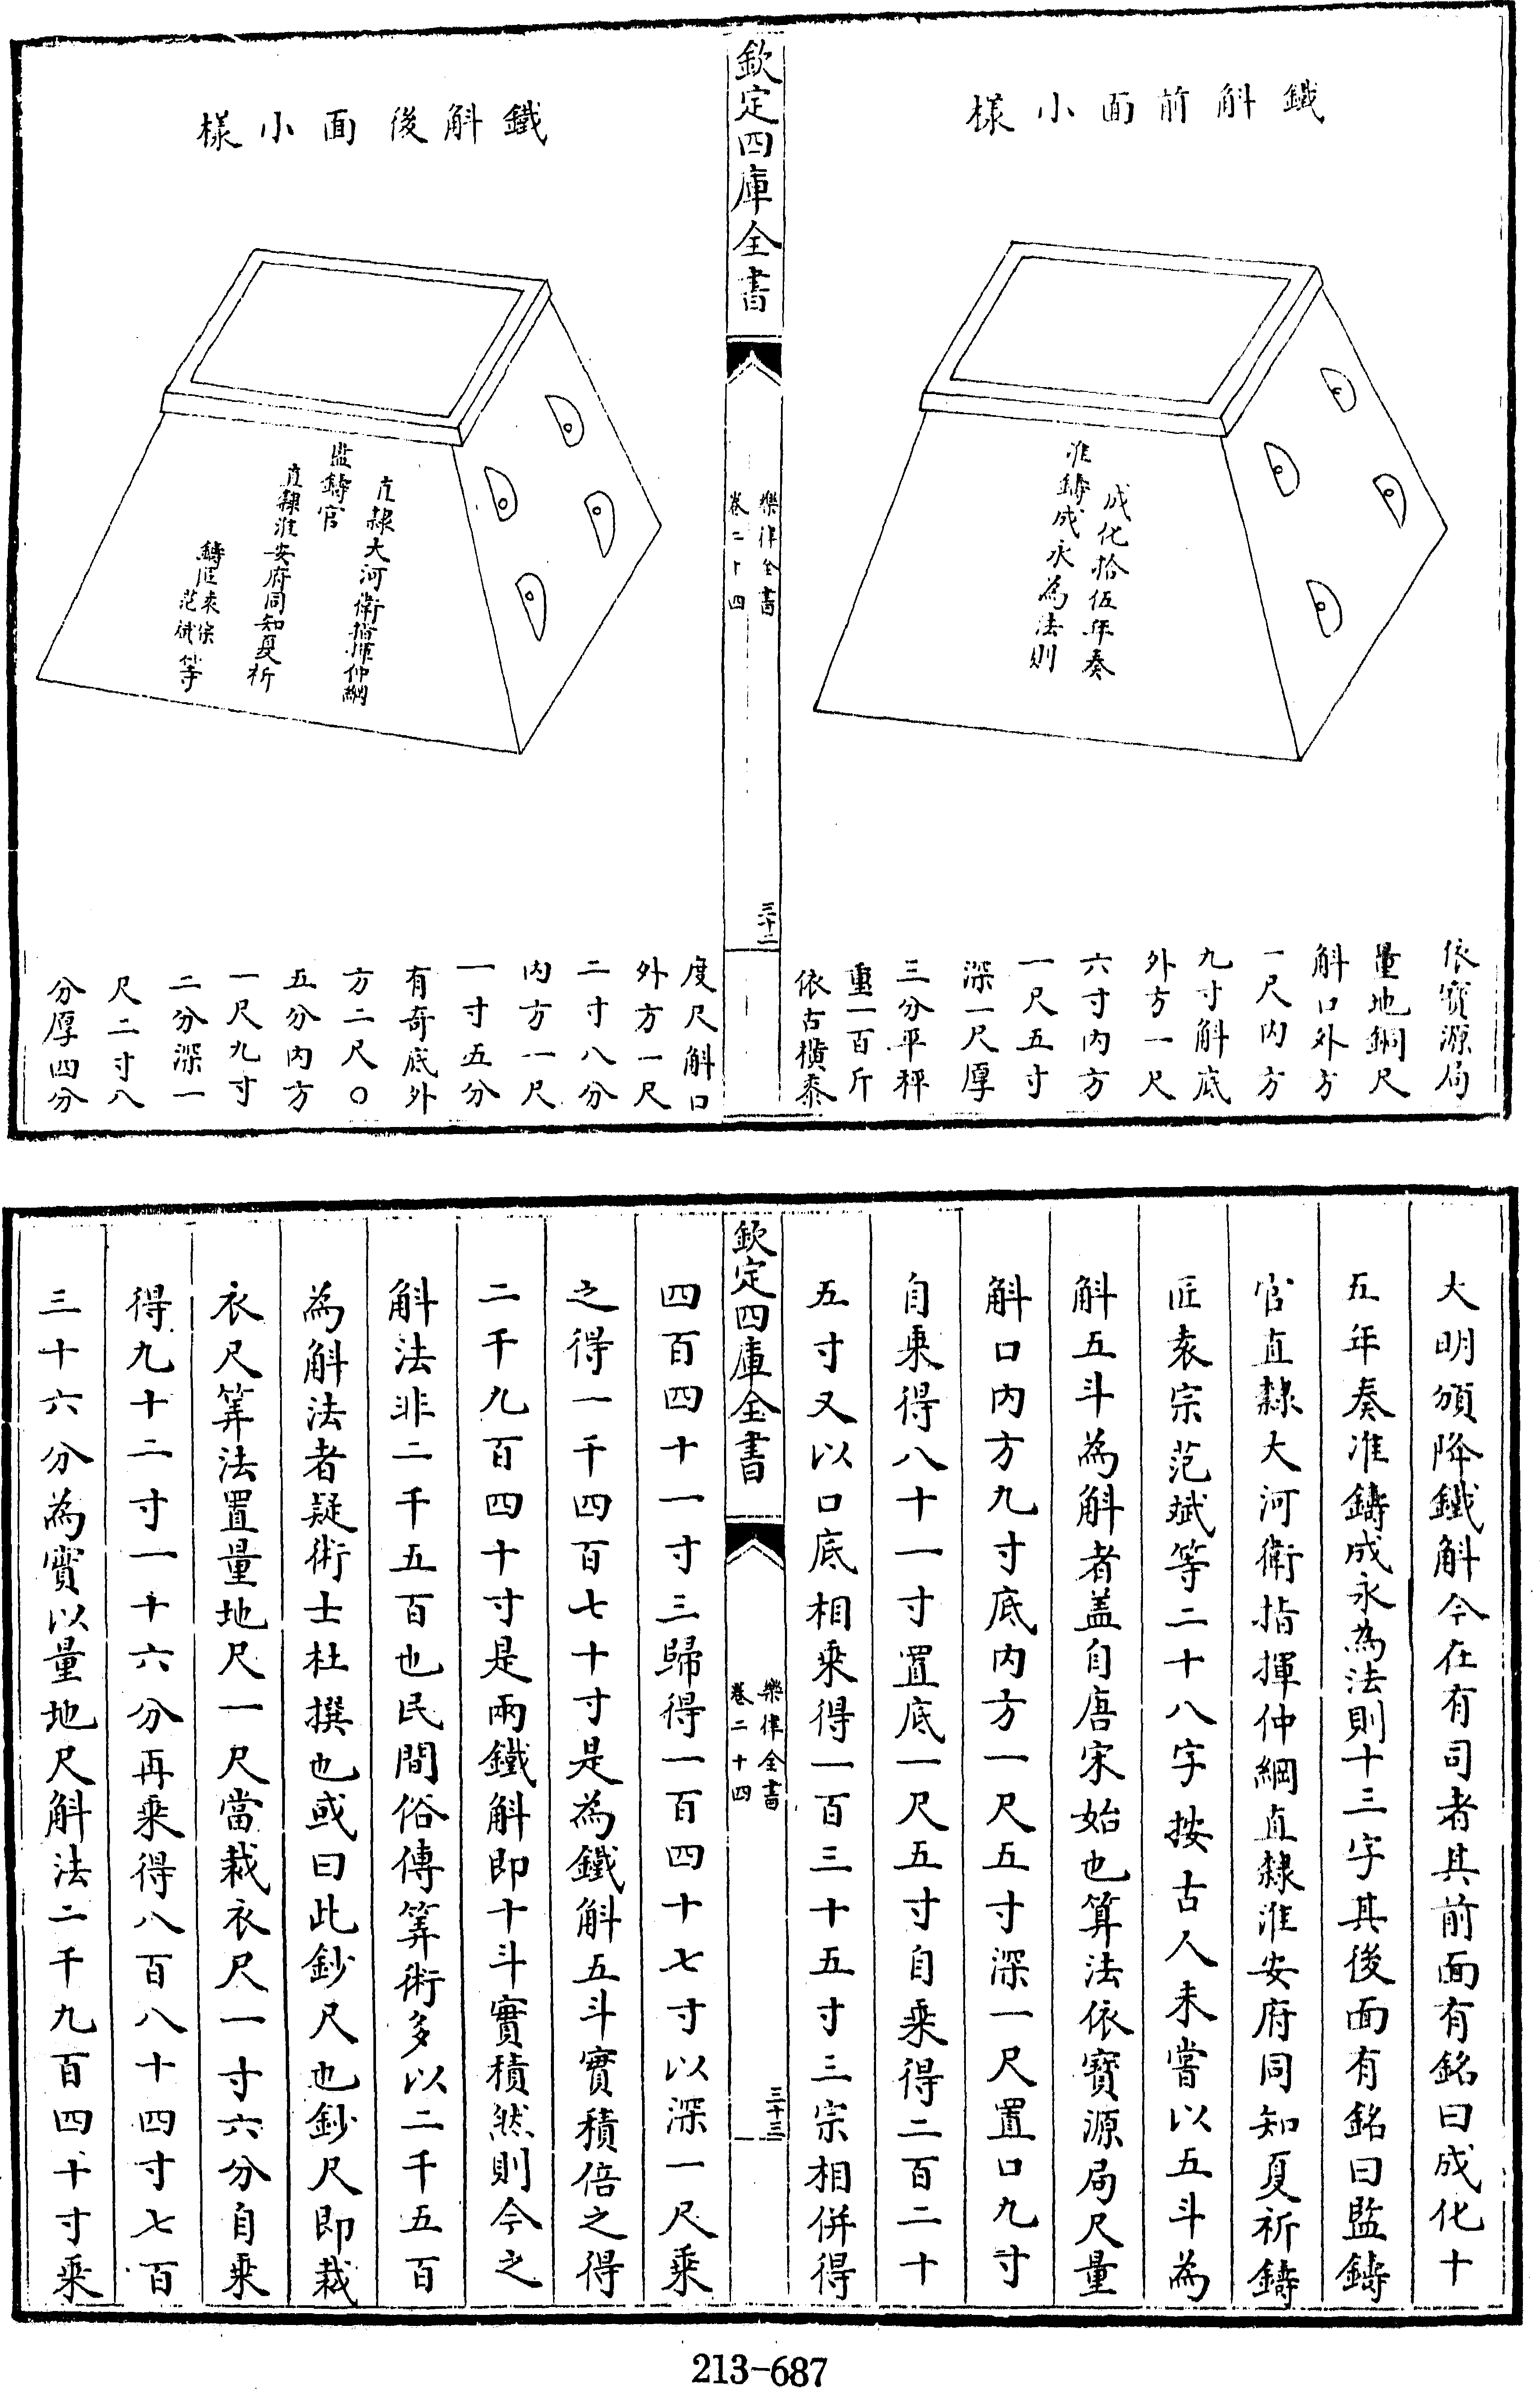 鐵斛前面小樣
成化拾伍年奏
准鑄成永為法則
依寳源局
量地銅尺
斛口外方
一尺内方
九寸斛底
外方一尺
六寸内方
一尺五寸
深一尺厚
三分平秤
重一百斤
依古橫黍
欽定四庫全書
樂律全書
卷二十四
三十二
鐵斛後面小樣
直隸大河衛指揮仲綱
監鑄官
直隸淮安府同知夏祈
鑄匠袁宗
范斌等
度尺斛口
外方一尺
二寸八分
内方一尺
一寸五分
有奇底外
方二尺〇
五分内方
一尺九寸
二分深一
尺二寸八
分厚四分
大明頒降鐵斛今在有司者其前面有銘曰成化十
五年奏准鑄成永為法則十三字其後面有銘曰監鑄
官直隸大河衛指揮仲綱直隸淮安府同知夏祈鑄
匠袁宗范斌等二十八字按古人未嘗以五斗為
斛五斗為斛者盖自唐宋始也算法依寳源局尺量
斛口内方九寸底内方一尺五寸深一尺置口九寸
自乘得八十一寸置底一尺五寸自乘得二百二十
五寸又以口底相乘得一百三十五寸三宗相併得
欽定四庫全書
樂律全書
卷二十四
三十三
四百四十一寸三歸得一百四十七寸以深一尺乘
之得一千四百七十寸是為鐵斛五斗實積倍之得
二千九百四十寸是兩鐵斛即十斗實積然則今之
斛法非二千五百也民間俗傳筭術多以二千五百
為斛法者疑術士杜撰也或曰此鈔尺也鈔尺即裁
衣尺筭法置量地尺一尺當裁衣尺一寸六分自乘
得九十二寸一十六分再乘得八百八十四寸七百
三十六分為實以量地尺斛法二千九百四十寸乘
213-687